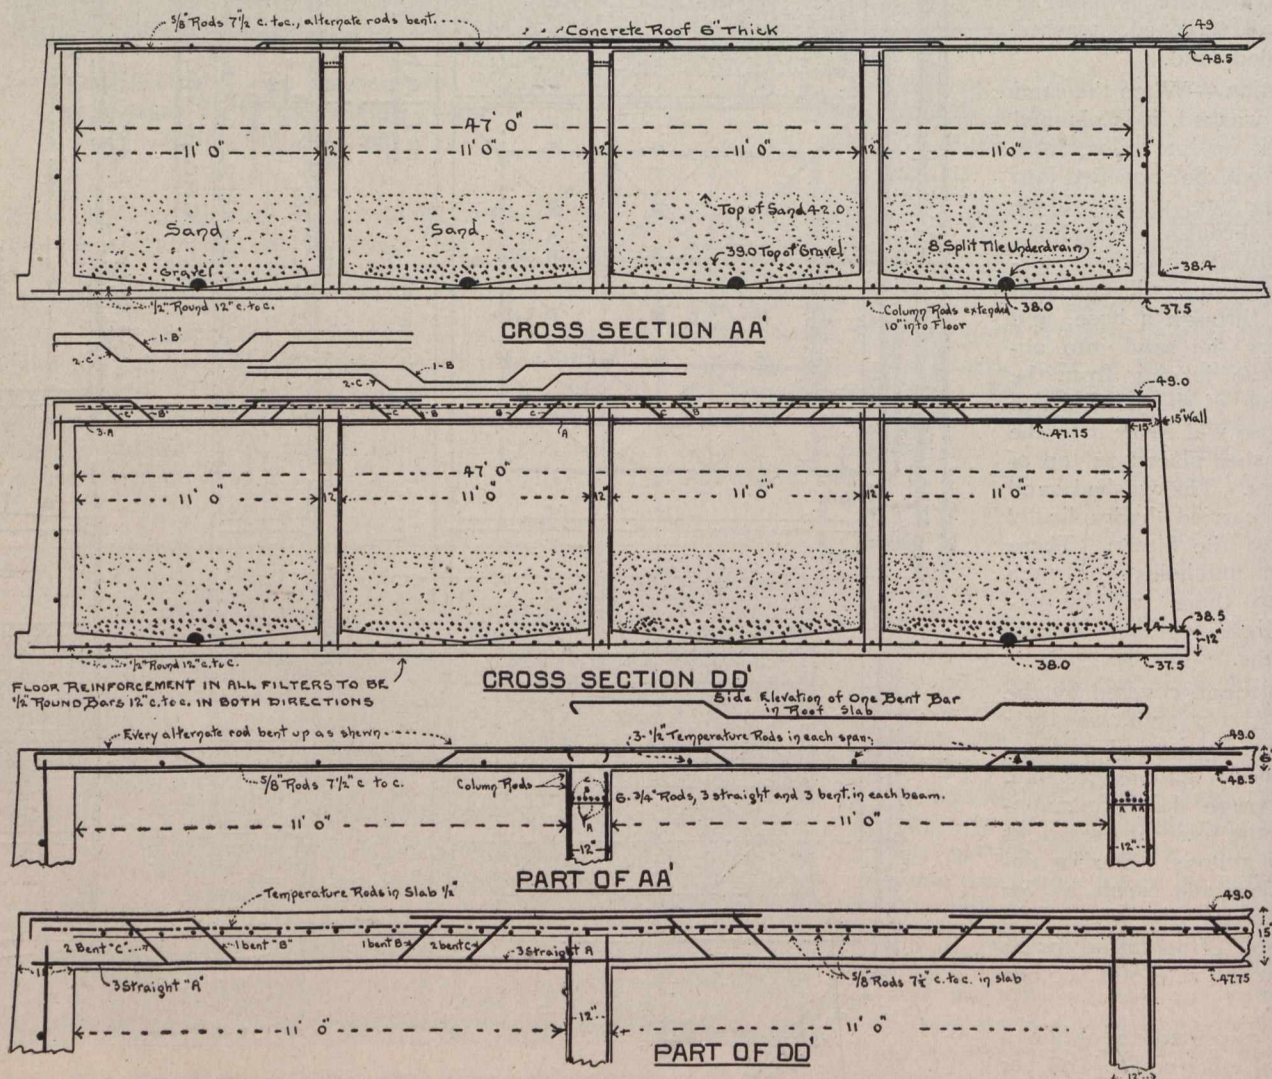 5/8" Rods 7 1/2 c. to c., alternate rods bent.
Concrete Roof 6" Thick
49
48.5
47' 0"
11' 0"
12"
11' 0"
12"
11' 0"
12"
11' 0"
15"
Sand
Sand
Top of Sand 42.0
39.0 Top of Gravel
8" Split Tile Underdrain
Gravel
38.4
1/2" Round 12" c. to c.
Column Rods extended
10" into Floor
38.0
37.5
CROSS SECTION AA'
1-B'
2-C'
1-B
2-C
49.0
C'
B'
C
B
B
C
C
B
3-A
A
47.75
15"
15" Wall
47' 0"
11' 0"
12"
11' 0"
12"
11' 0"
12"
11' 0"
38.5
12"
1/2" Round 12" c. to c.
38.0
37.5
FLOOR REINFORCEMENT IN ALL FILTERS TO BE
1/2" ROUND BARS 12" c. to c. IN BOTH DIRECTIONS
CROSS SECTION DD'
Side Elevation of One Bent Bar
in Roof Slab
Every alternate rod bent up as shewn
3-1/2" Temperature Rods in each span
49.0
6"
48.5
5/8" Rods 7 1/2" c to c.
Column Rods
B
A
6-3/4" Rods, 3 straight and 3 bent in each beam.
A AA
11' 0"
12"
11' 0"
12"
PART OF AA'
Temperature Rods in Slab 1/2"
49.0
15"
2 Bent "C"
1 bent "B"
1 bent B
2 bent C
3 Straight A
3 Straight "A"
5/8" Rods 7 1/2 c. to c. in slab
47.75
11' 0"
12"
11' 0"
PART OF DD'
12"